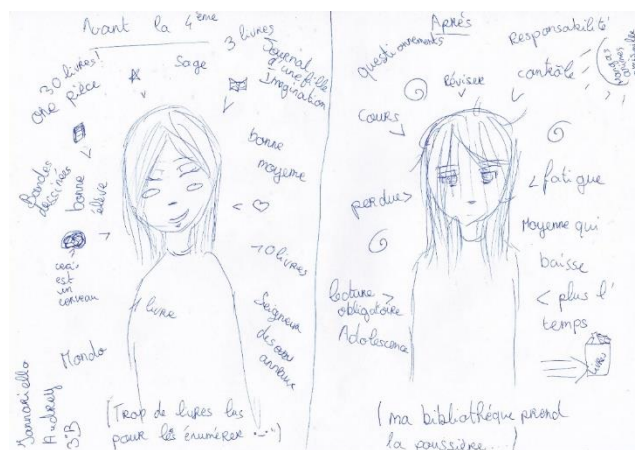 Avant la 4ème
30 livres!
One pièce
Sage
3 livres
Journal
d'une fille
Imagination
Bandes
dessinées
bonne
élève
bonne
moyenne
ceci
est
un
cerveau
1 livre
10 livres
Seigneur
des
anneaux
Mondo
Iannariello
Audrey
3°B
(Trop de livres lus
pour les énumérer
Après
questionnements
Réviser
Responsabilité
contrôle
Cours
perdues
fatigue
Moyenne qui
baisse
plus l'
temps
lecture
obligatoire
Adolescence
(ma bibliothéque prend
la poussière...)